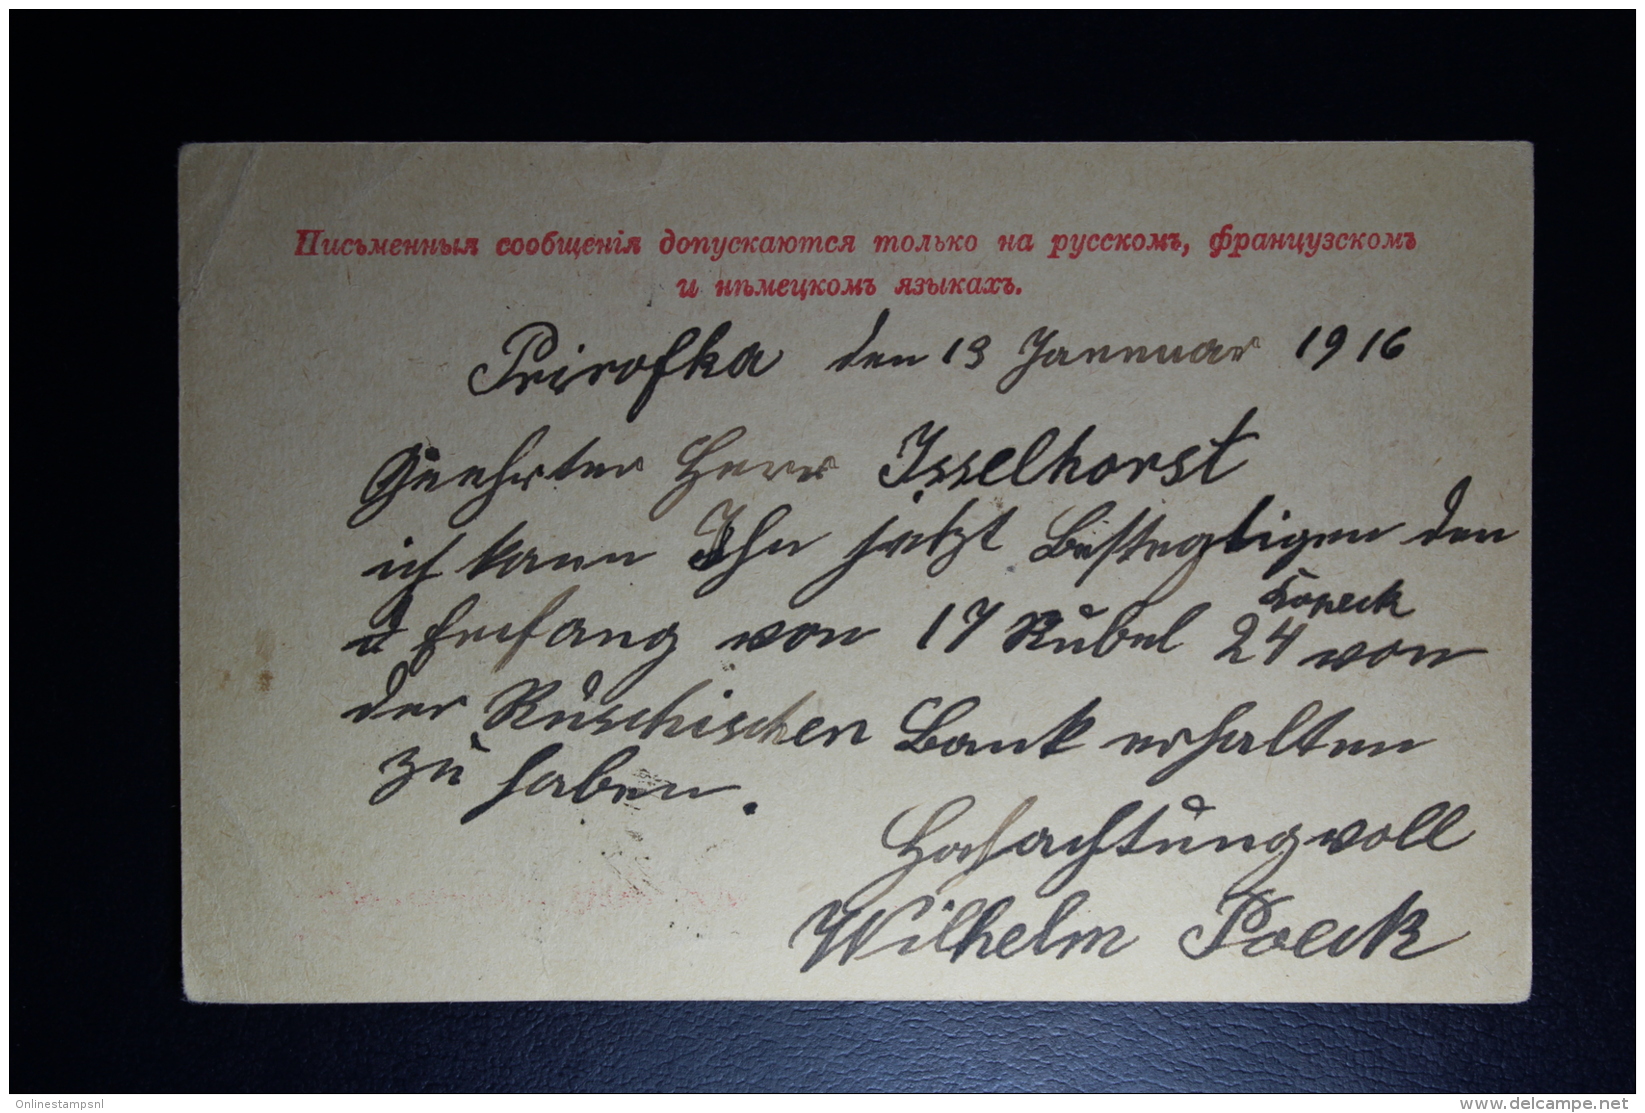 Письменныя сообщенія допускаются только на русскомъ, французскомъ
и нѣмецкомъ языкахъ.
Prirofka den 13 Januar 1916
Geehrter Herr Isselhorst
ich kann Ihn jetzt Besteatigen den
Emfang von 17 Rubel 24 Kopeck von
der Ruschischen Bank erhalten
zu haben.
Hochachtungvoll
Wilhelm Poeck
Onlinestampsnl
www.delcampe.net